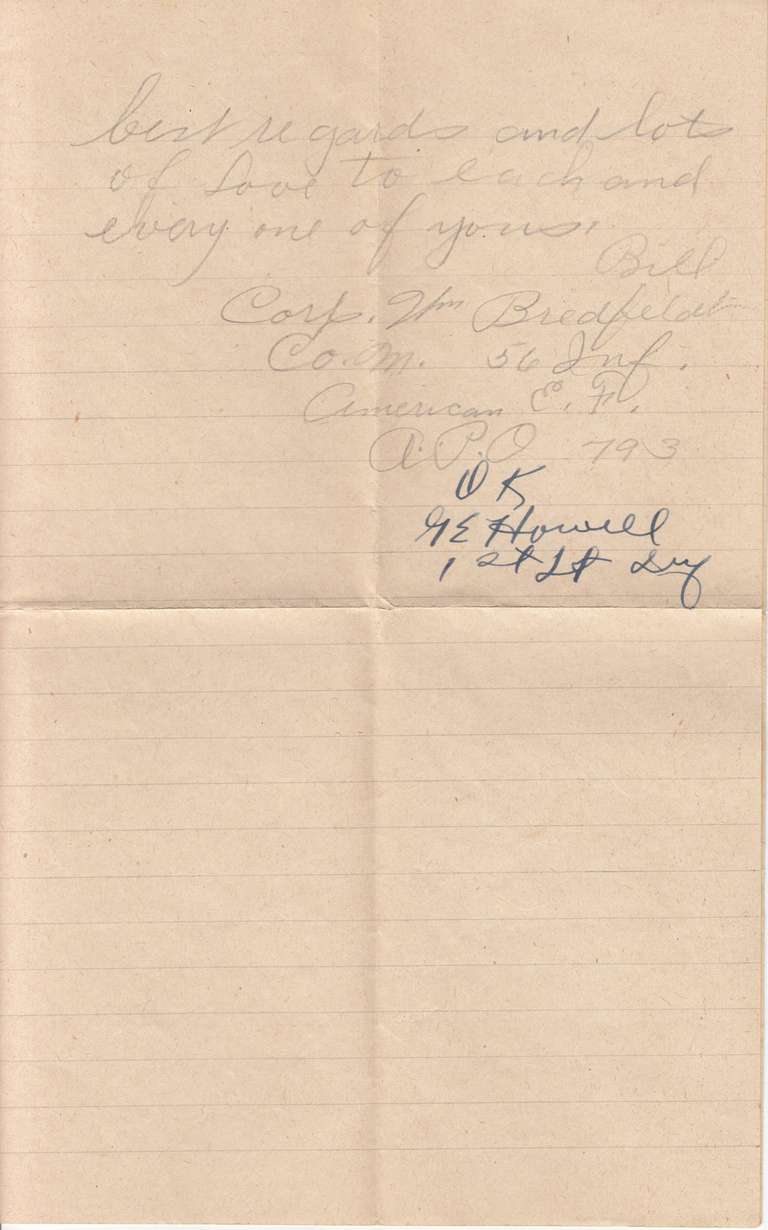 best regards and lots
of love to each and
every one of yous.
Bill
Corp. Wm Bredfeldt
Co. M. 56 Inf.
American E. F.
A.P.O 793
OK
GE Howell
1st Lt Inf